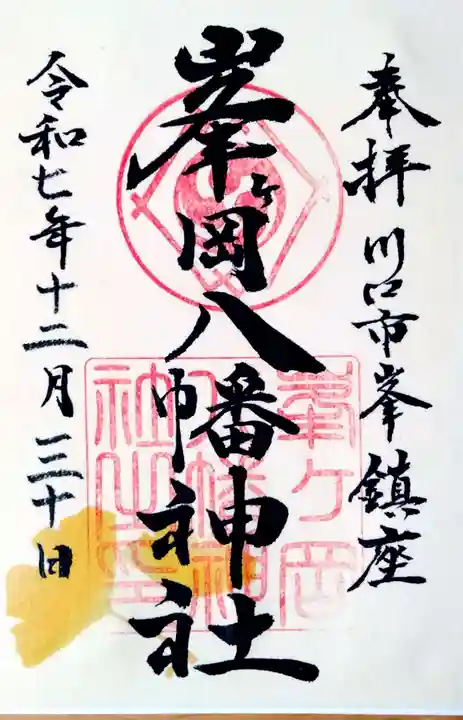 奉拝 川口市峯鎮座
峯ヶ岡八幡神社
峯ヶ岡
八幡神
社之印
令和七年十二月三十日